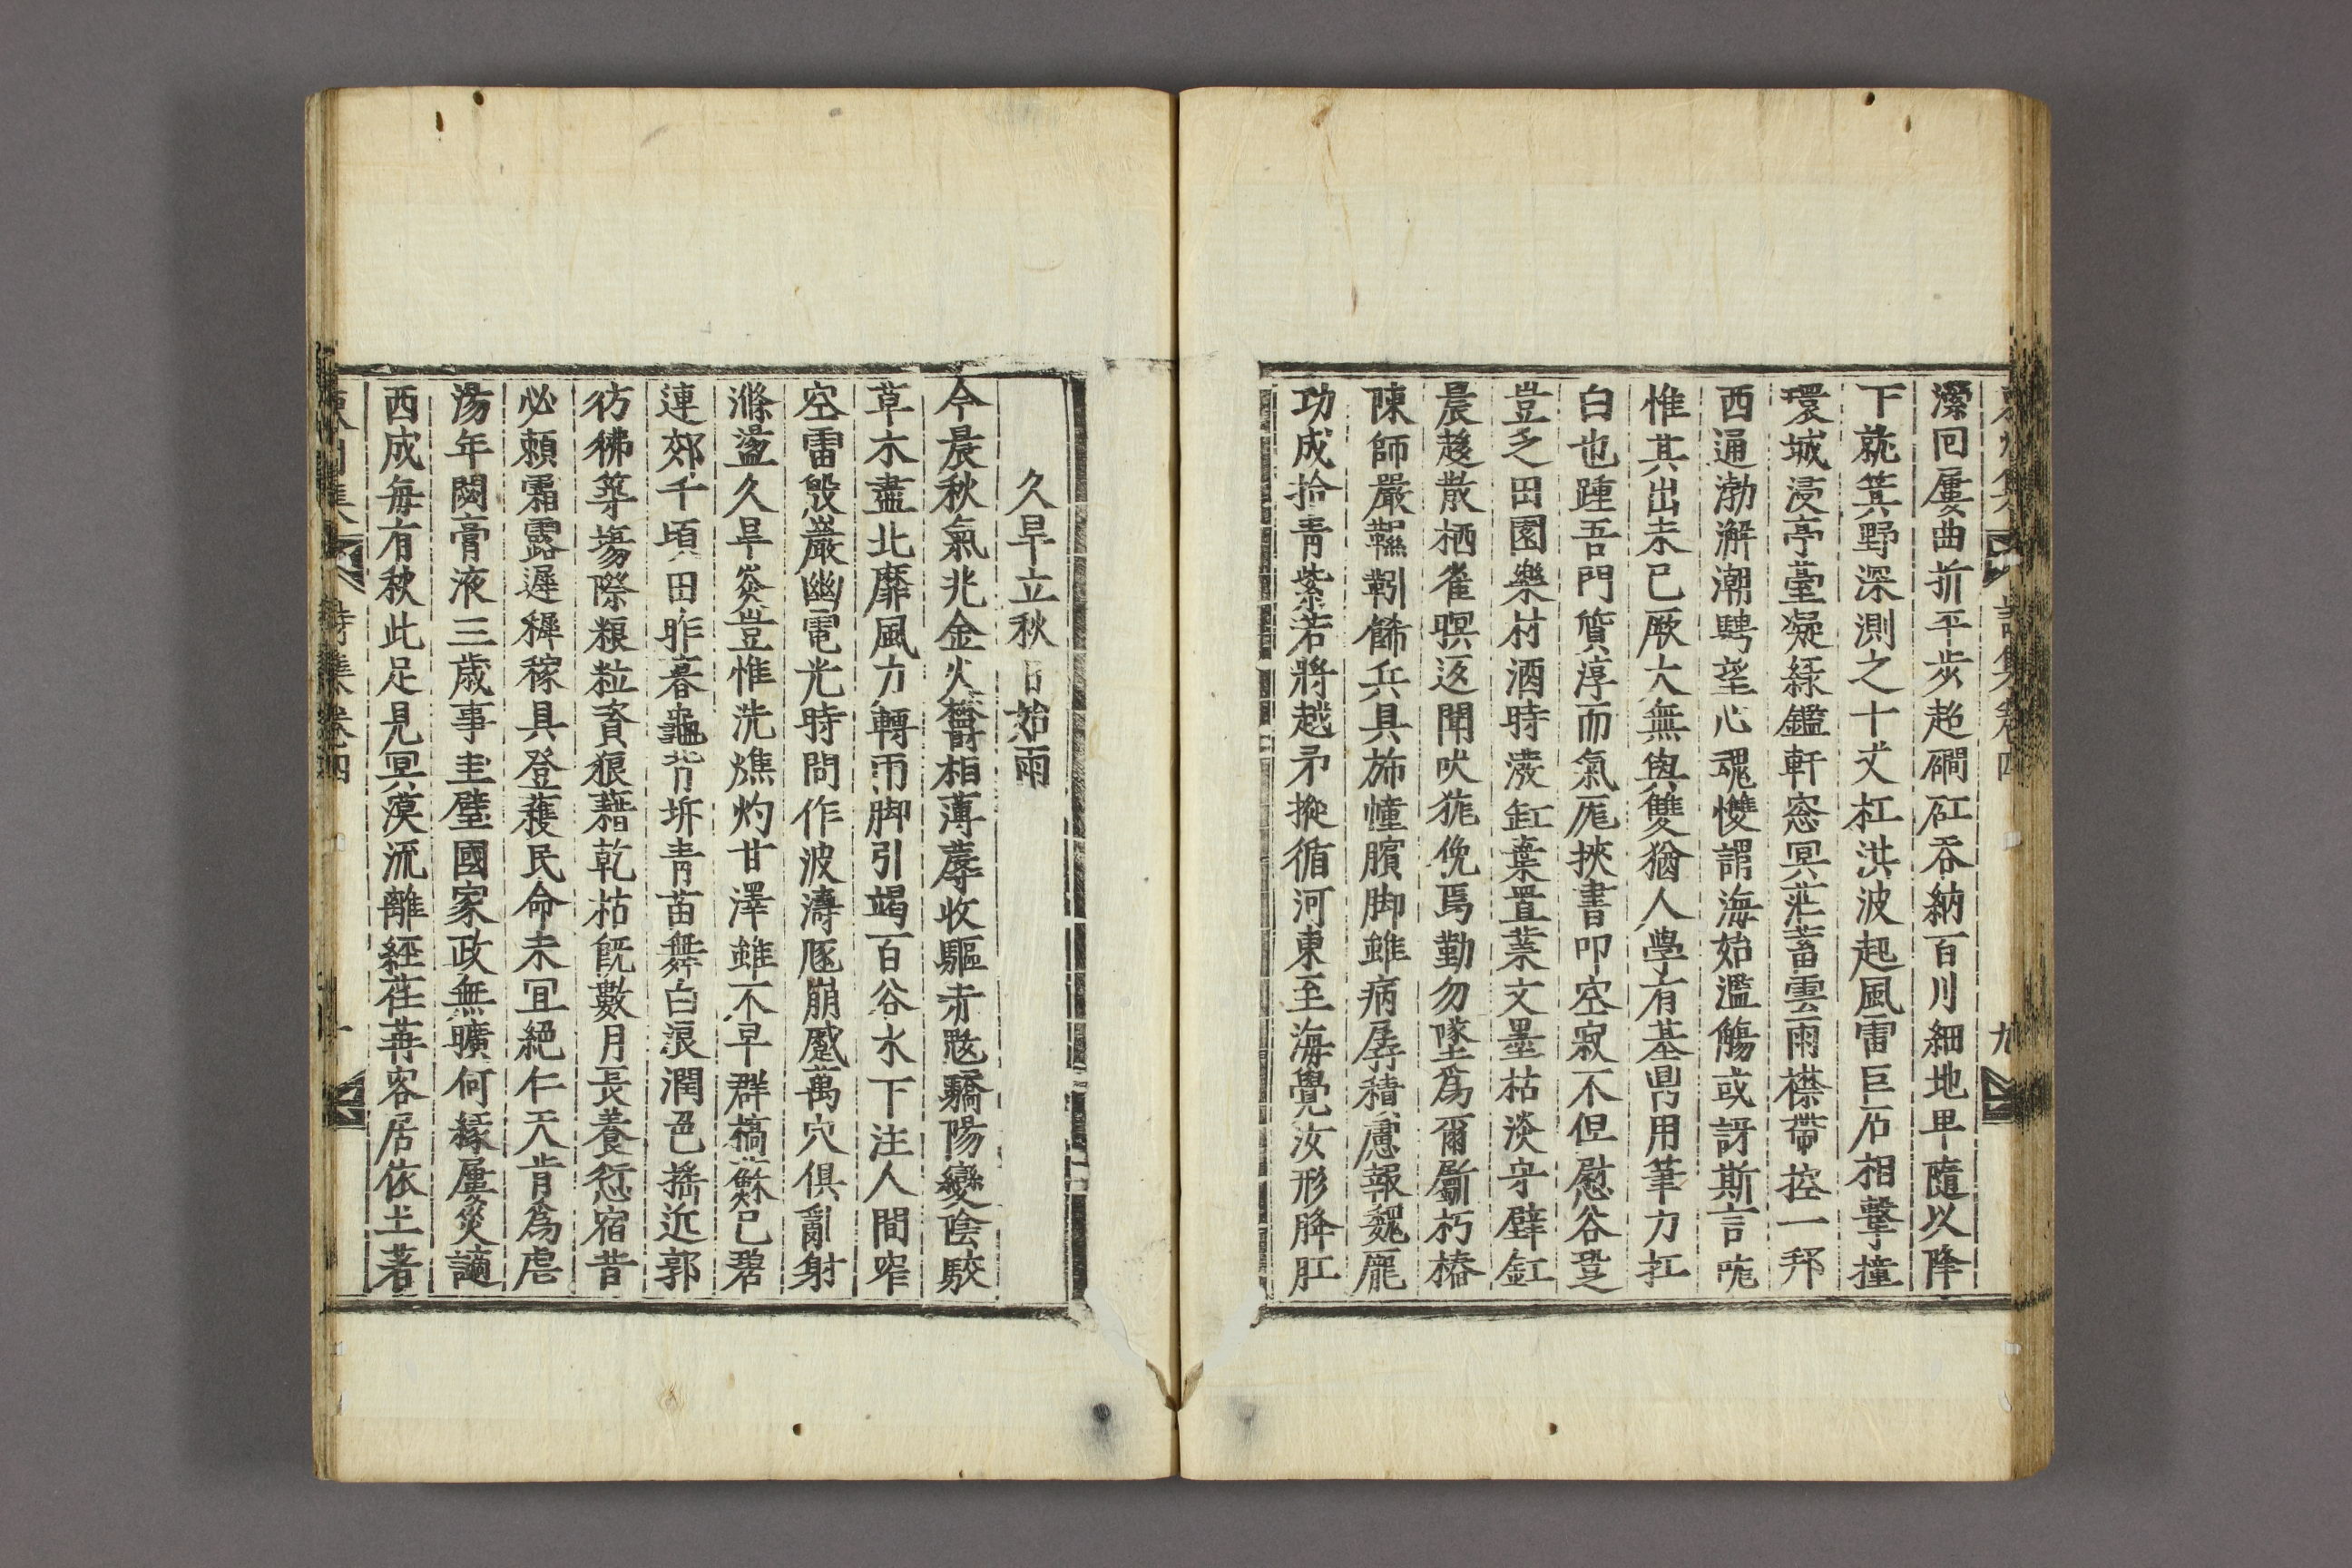 瀠回屢曲折平步超礀矼吞納百川細地卑隨以降
下就箕野深測之十丈杠洪波起風雷巨石相擊撞
環城浸亭臺凝綠鑑軒窓冥茫蓄雲雨襟帶控一邦
西通渤澥潮騁望心魂㦼謂海始濫觴或訝斯言哤
惟其出未已厥大無與雙猶人學有基鼎用筆力扛
白也踵吾門質淳而氣厖挾書叩空寂不但慰谷跫
豈乏田園樂村酒時潑缸棄置業文墨枯淡守壁釭
晨趍散栖雀暝返聞吠狵俛焉勤勿墜爲爾斸朽樁
陳師嚴鞿靷飾兵具斾幢臏脚雖病孱積慮報魏龐
功成拾靑紫若將越矛摐循河東至海覺汝形肨肛
久旱立秋日始雨
今晨秋氣兆金火䜿相薄蓐收驅赤魃驕陽變陰駮
草木盡北靡風力轉雨脚引竭百谷水下注人間窄
空雷毁巖幽電光時閃作波濤豗崩蹙萬穴俱亂射
滌盪久旱災豈惟洗燋灼甘澤雖不早群槁蘇已碧
連郊千頃田昨暮龜背坼靑苗舞白浪潤色搖近郭
彷彿築塲際粮粒資狼藉乾枯旣數月長養愆宿昔
必賴霜露遲穉稼具登蓰民命未冝絕仁天肯爲虐
湯年闕膏液三歲事圭璧國家政無曠何緣屢災謫
西成每有秋此足見冥漠流離經荏苒客居依土著
詩集卷四